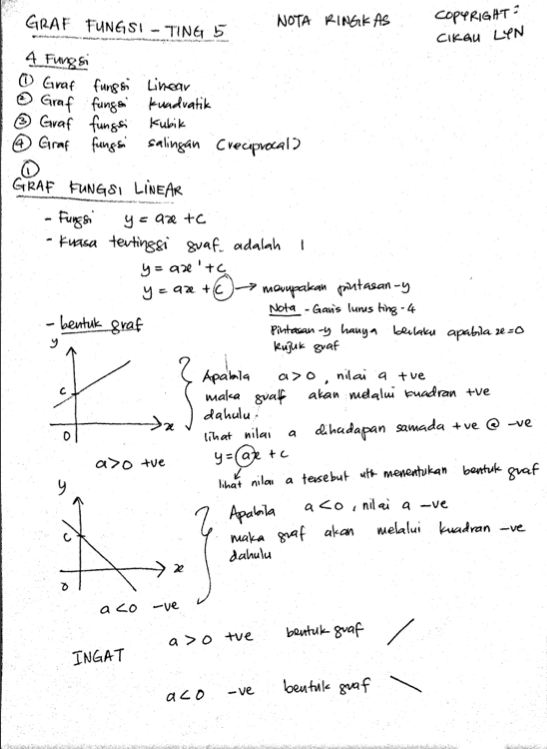 GRAF FUNGSI - TING 5
NOTA RINGKAS
COPYRIGHT:
CIKGU LYN
4 Fungsi
① Graf fungsi Linear
② Graf fungsi kuadratik
③ Graf fungsi kubik
④ Graf fungsi salingan (reciprocal)
①
GRAF FUNGSI LINEAR
- Fungsi y = ax + c
- kuasa tertinggi graf adalah 1
y = ax¹ + c
y = ax + c → merupakan pintasan-y
Nota - Garis lurus ting-4
Pintasan-y hanya berlaku apabila x=0
Rujuk graf
- bentuk graf
y
c
0
x
a>0 +ve
Apabila a>0, nilai a +ve
maka graf akan melalui kuadran +ve
dahulu.
lihat nilai a dihadapan samada +ve @ -ve
y = ax + c
lihat nilai a tersebut utk menentukan bentuk graf
y
c
0
x
a<0 -ve
Apabila a<0, nilai a -ve
maka graf akan melalui kuadran -ve
dahulu
INGAT
a>0 +ve bentuk graf /
a<0 -ve bentuk graf \